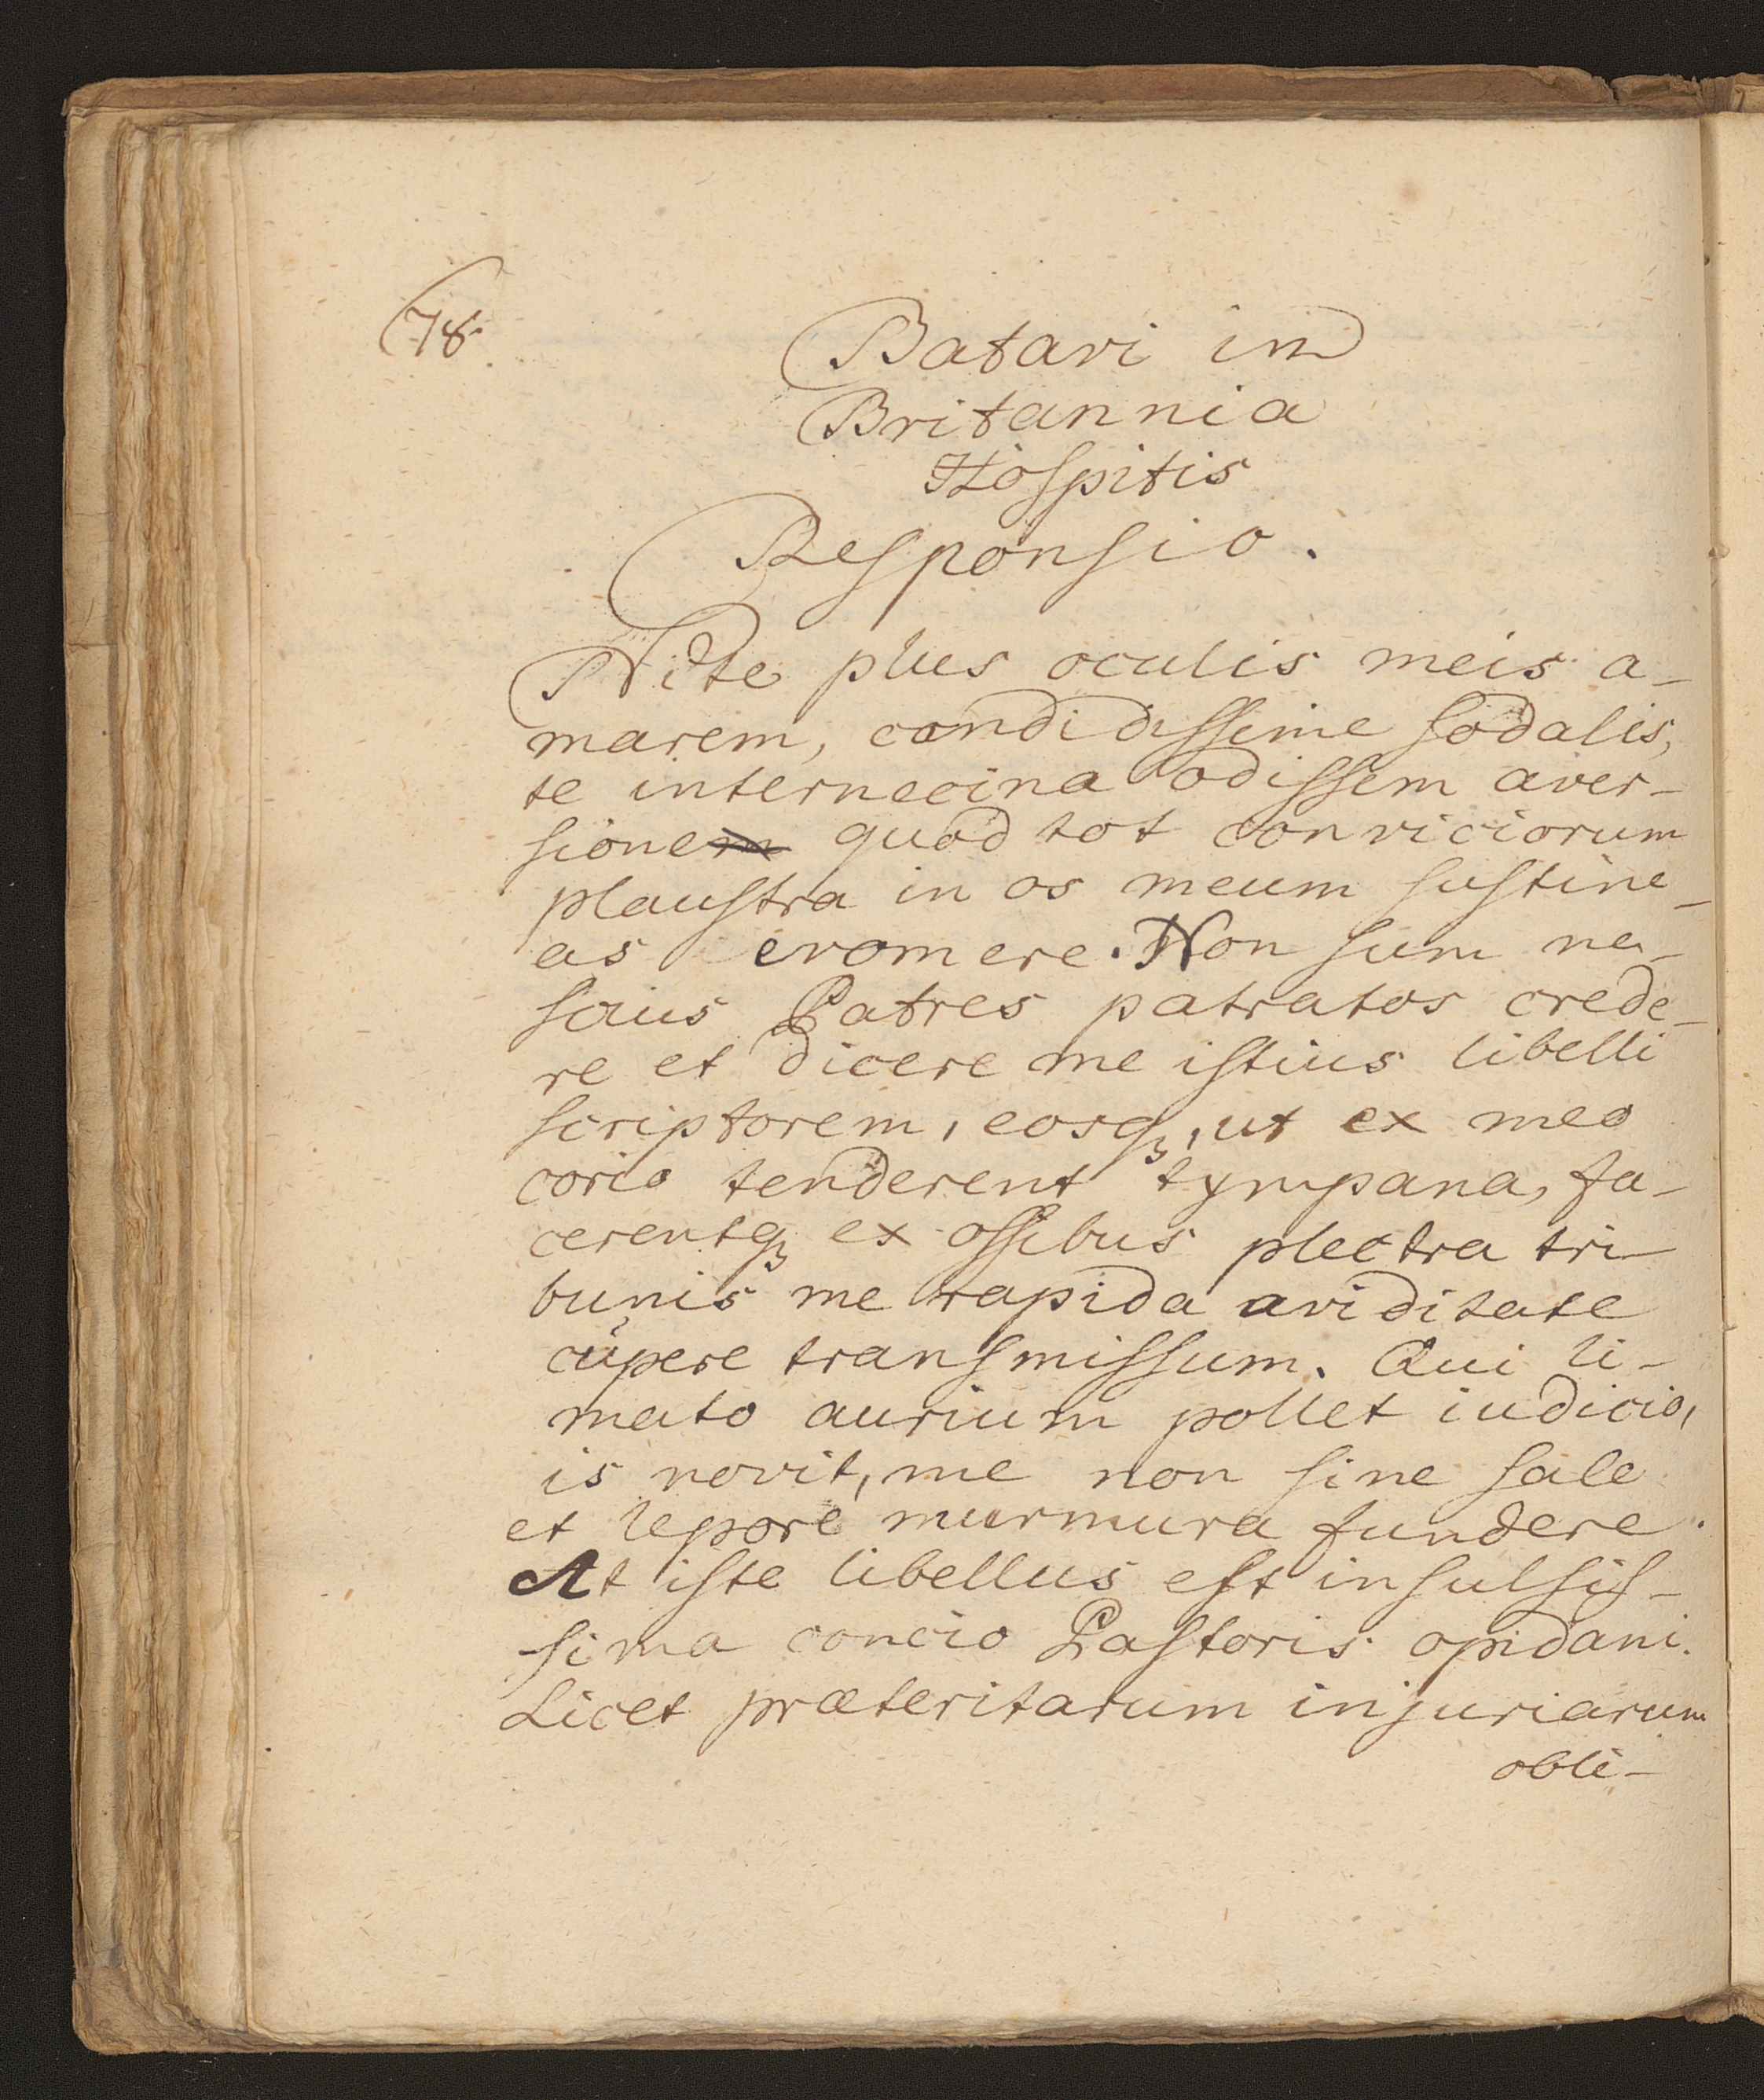 78.
Batavi in
Britannia
Hoſpitis
Reſponſio.
Ni te plus oculis meis a-
marem, candidiſſime ſodalis,
te internecina odiſſem aver-
ſione quod tot conviciorum
plauſtra in os meum ſuſtine-
as evomere. Non ſum ne-
ſcius Patres patratos crede-
re et dicere me iſtius libelli
ſcriptorem, eosqꝫ, ut ex meo
corio tenderent tympana, fa-
cerentqꝫ ex oſſibus plectra tri-
bunis me rapida aviditate
cupere tranſmiſsum. Qui li-
mato aurium pollet iudicio,
is novit, me non ſine ſale
et lepore murmura fundere.
At iſte libellus eſt inſulſiſ-
ſima concio Paſtoris opidani.
Licet præteritarum injuriarum
obli-